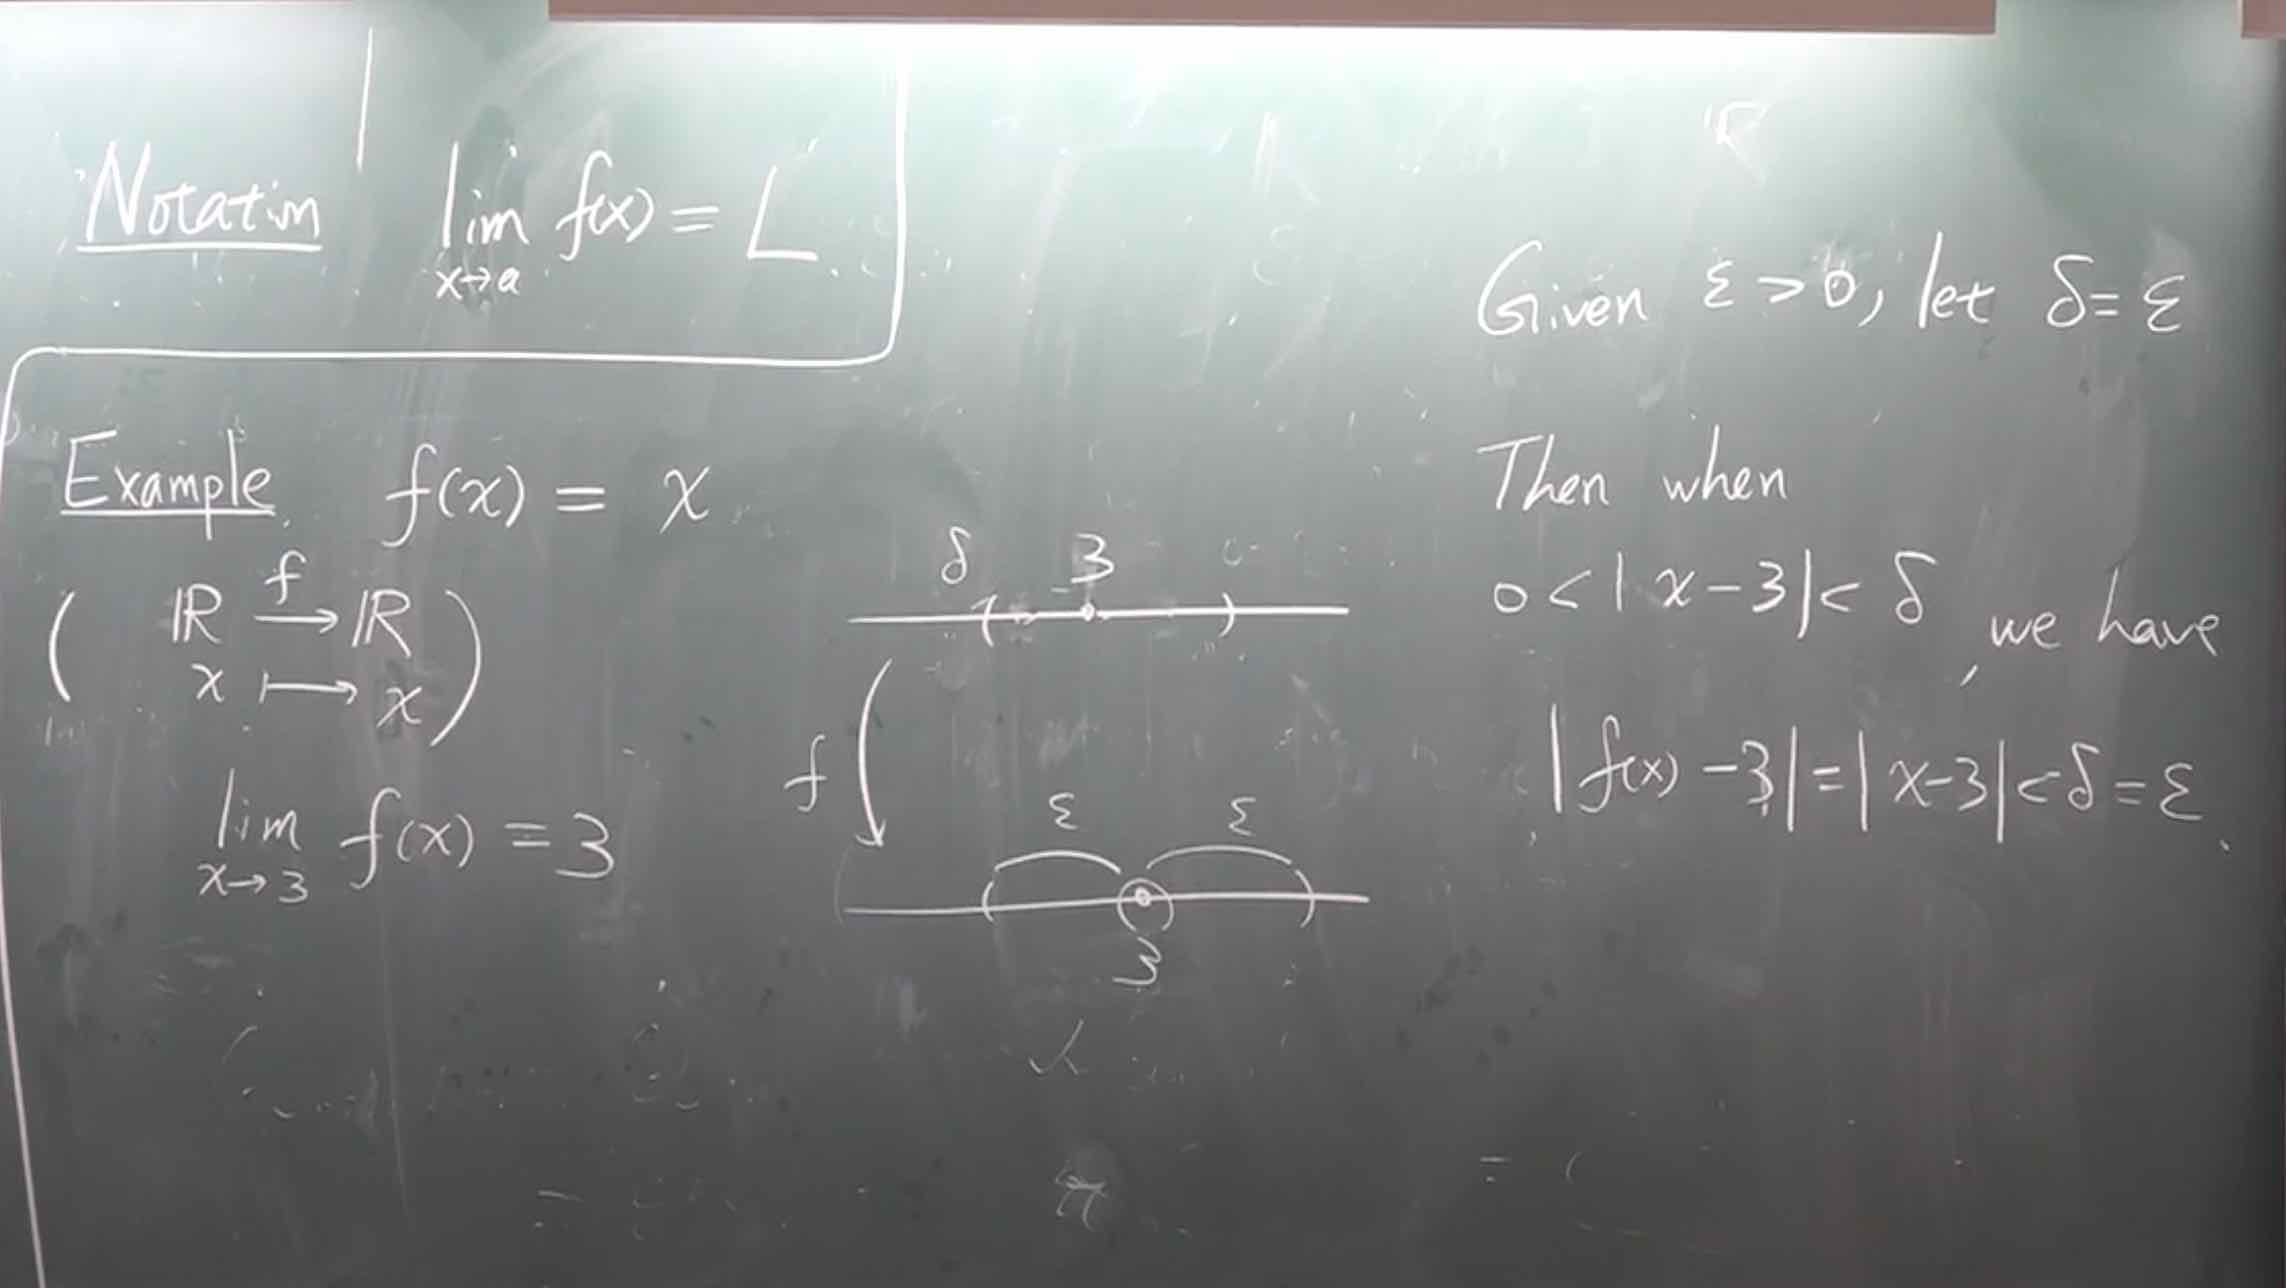 Notation lim f(x) = L
x→a
Example f(x) = x
( ℝ →f ℝ
x ↦ x )
lim f(x) = 3
x→3
δ 3
f
ε ε
3
Given ε > 0, let δ = ε
Then when
0 < | x − 3 | < δ , we have
| f(x) − 3 | = | x − 3 | < δ = ε .